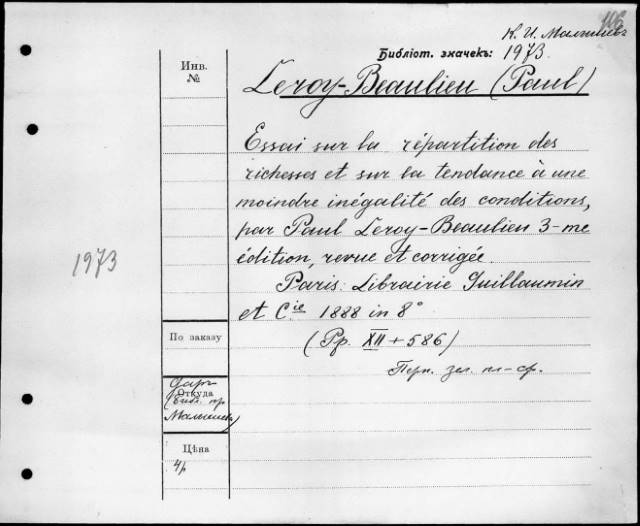 106
К. И. Малышевъ
Библіот. значекъ: 1973.
Инв.
№
Leroy-Beaulieu (Paul)
Essai sur la répartition des
richesses et sur la tendance à une
moindre inégalité des conditions,
par Paul Leroy-Beaulieu 3-me
édition, revue et corrigée.
1973
Paris: Librairie Guillaumin
et Cie 1888 in 8°
(Pp. XII + 586)
По заказу
Пер. зел. пл-ср.
Даръ
Откуда
(Библ. пр
Малышева)
Цѣна
4р